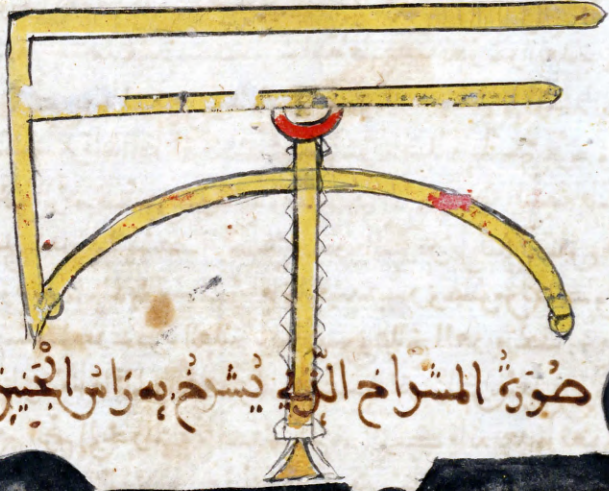 صُورَةُ المشداخ الَّذِي يُشدخُ بِهِ رَاسُ الجَنِين